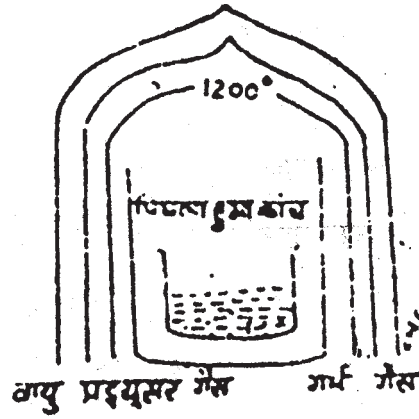 1200°
पिघला हुआ कांच
वायु प्रड्यूसर गैस गर्म गैस